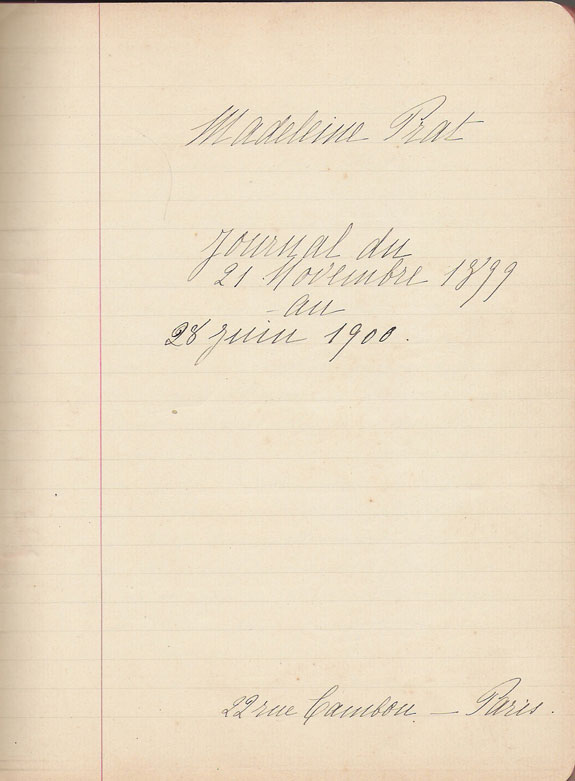 Madeleine Prat
Journal du
21 Novembre 1899
au
28 juin 1900.
22 rue Cambon — Paris.